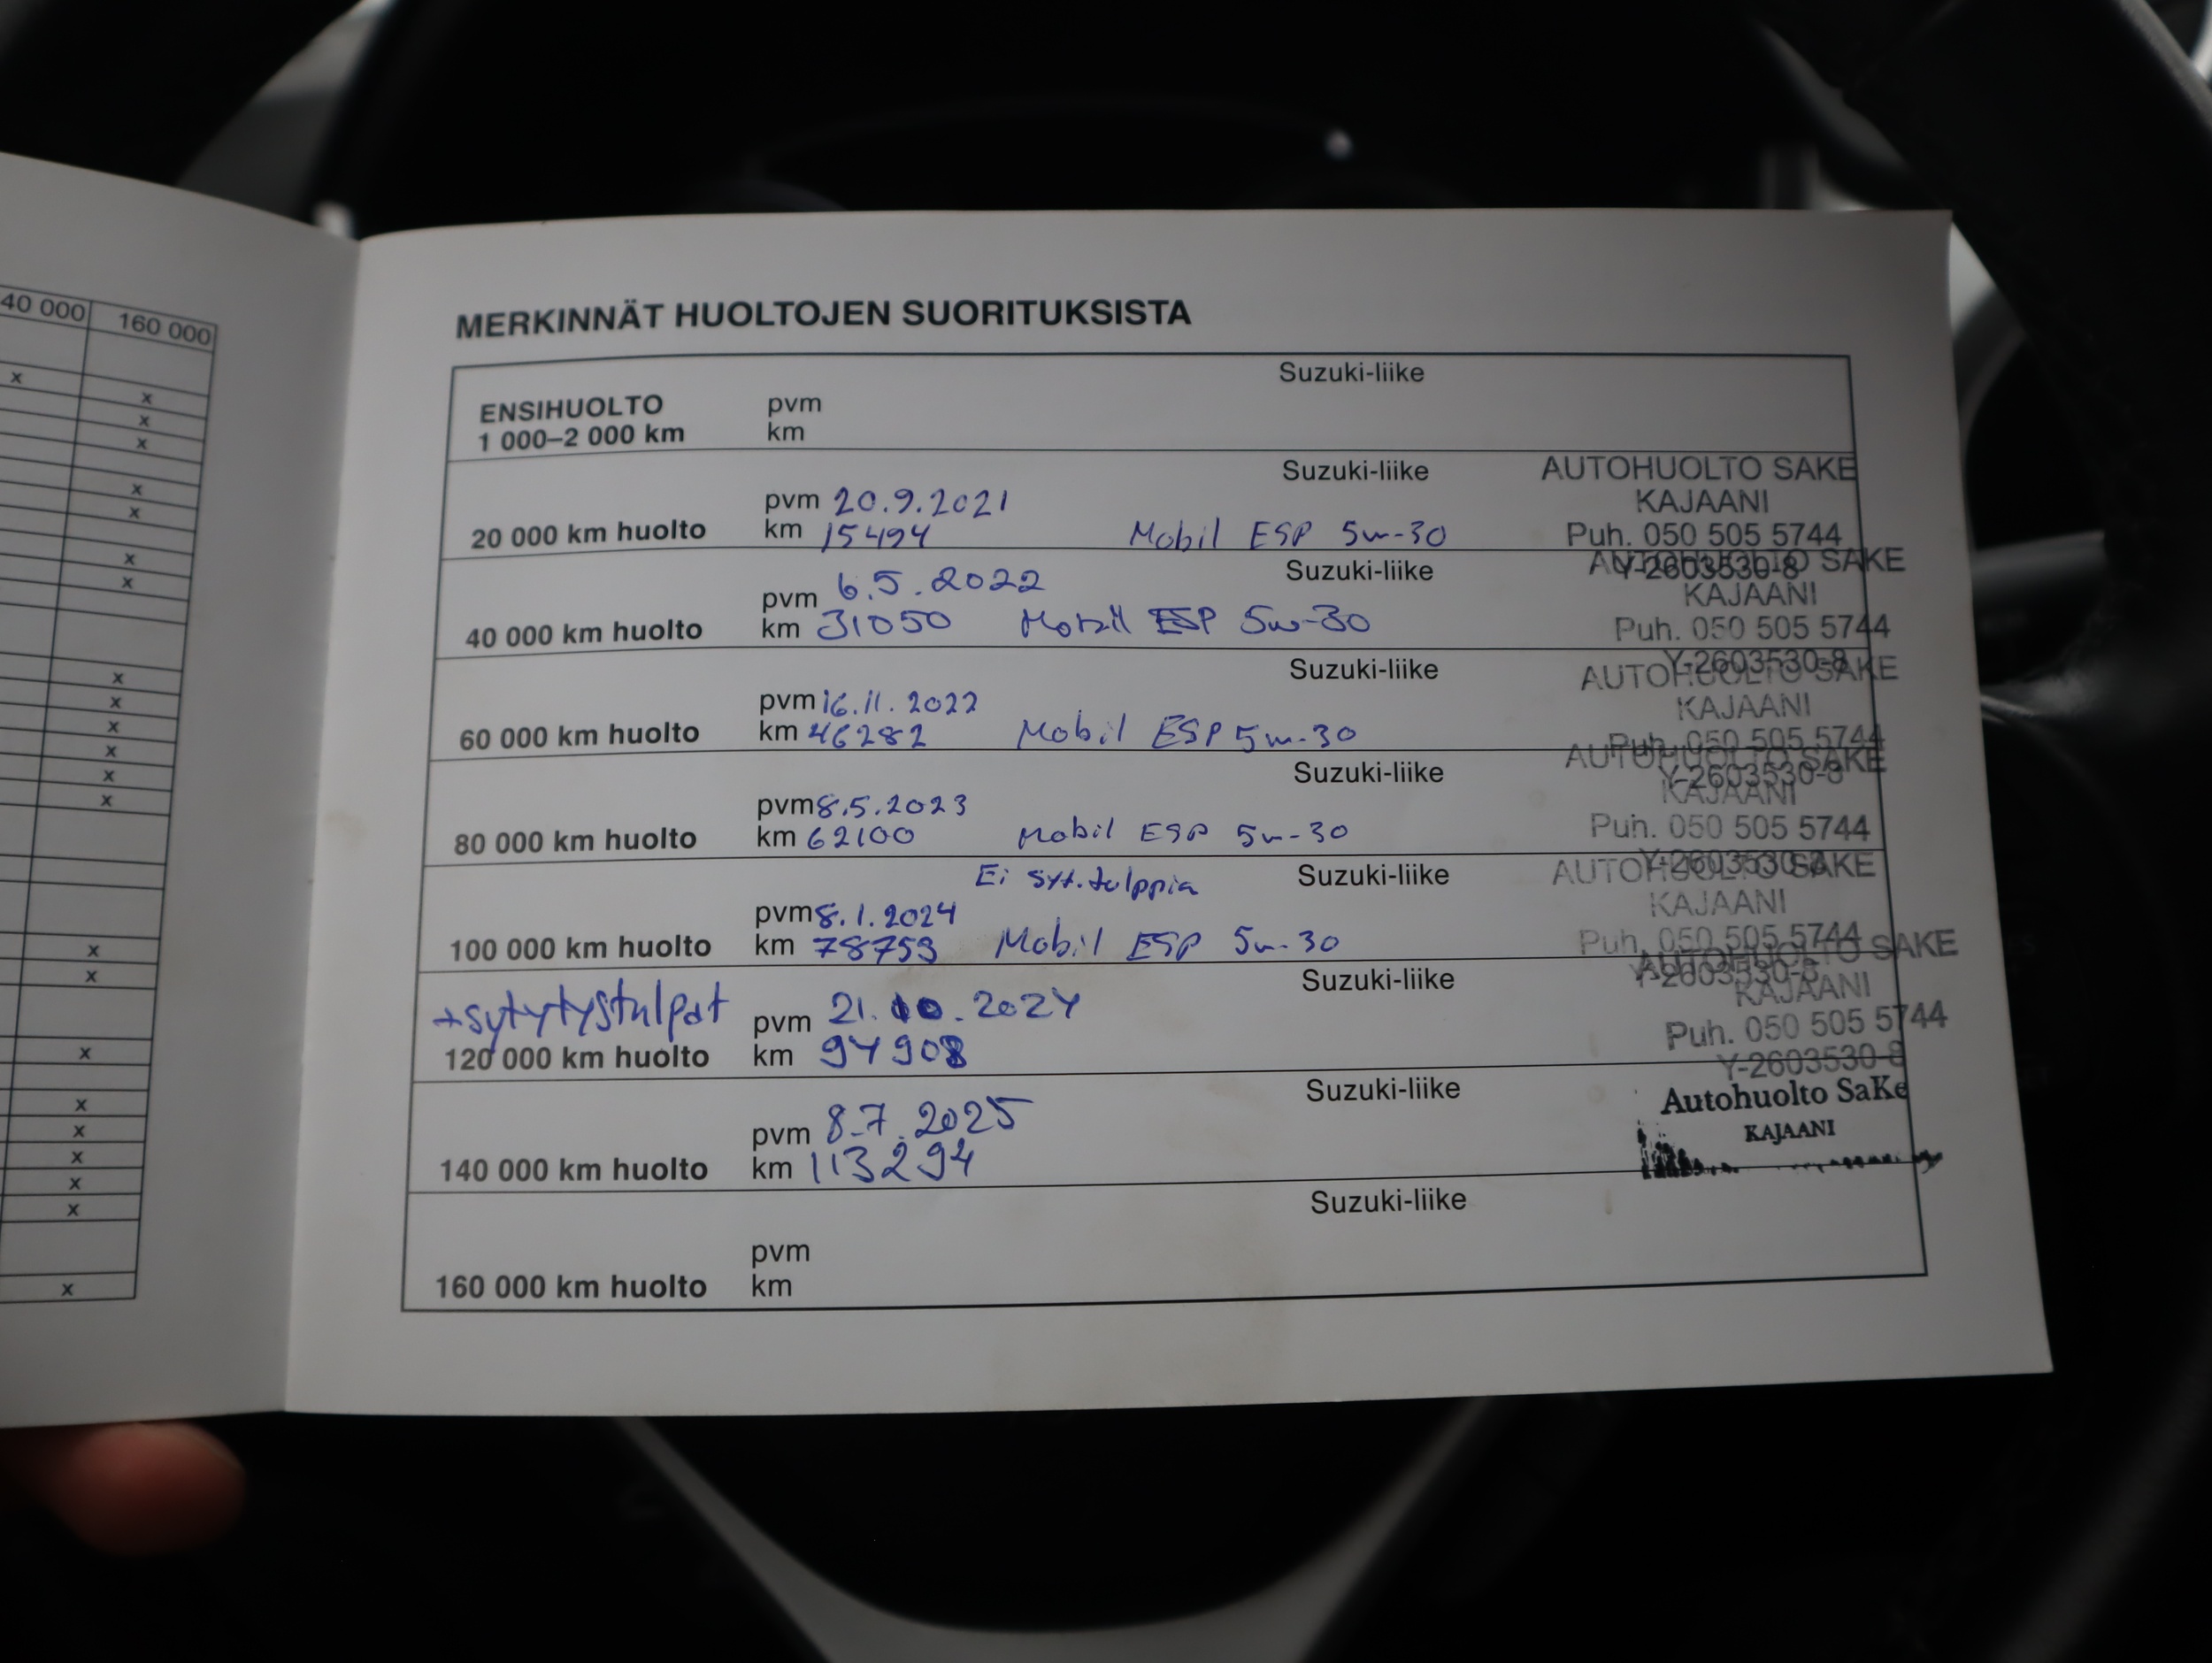 40 000 160 000
x
x
x
x
x
x
x
x
x
x
x
x
x
x
x
x
x
x
x
x
x
x
x
MERKINNÄT HUOLTOJEN SUORITUKSISTA
Suzuki-liike
ENSIHUOLTO pvm
1 000–2 000 km km
Suzuki-liike AUTOHUOLTO SAKE
KAJAANI
pvm 20.9.2021
20 000 km huolto km 15494 Mobil ESP 5w-30 Puh. 050 505 5744
Y-2603530-8
Suzuki-liike AUTOHUOLTO SAKE
pvm 6.5.2022 KAJAANI
40 000 km huolto km 31050 Mobil ESP 5w-30 Puh. 050 505 5744
Y-2603530-8
Suzuki-liike AUTOHUOLTO SAKE
pvm 16.11.2022 KAJAANI
60 000 km huolto km 46282 Mobil ESP 5w-30 Puh. 050 505 5744
Y-2603530-8
Suzuki-liike AUTOHUOLTO SAKE
pvm 8.5.2023 KAJAANI
80 000 km huolto km 62100 Mobil ESP 5w-30 Puh. 050 505 5744
Y-2603530-8
Ei syt.tulppia Suzuki-liike AUTOHUOLTO SAKE
pvm 8.1.2024 KAJAANI
100 000 km huolto km 78753 Mobil ESP 5w-30 Puh. 050 505 5744
Y-2603530-8
Suzuki-liike AUTOHUOLTO SAKE
+sytytystulpat pvm 21.10.2024 KAJAANI
120 000 km huolto km 94908 Puh. 050 505 5744
Y-2603530-8
Suzuki-liike Autohuolto SaKe
pvm 8.7.2025 KAJAANI
140 000 km huolto km 113294
Suzuki-liike
pvm
160 000 km huolto km